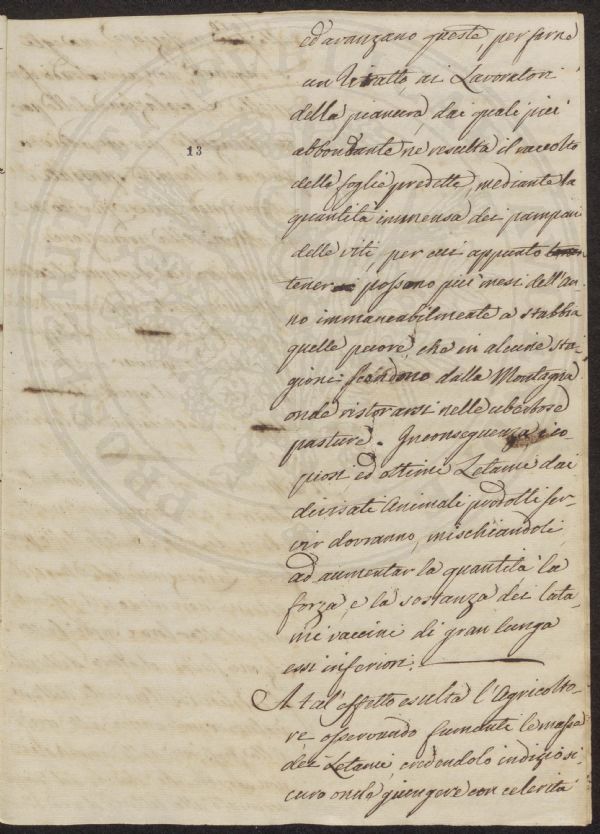 13
ed avanzano queste, per farne
un Tratto, ai Lavoratori
della pianura, dai quali più
abbondante ne resulta il raccolto
delle foglie predette, mediante la
quantità immensa dei pampani
delle viti, per cui appunto
tener possono più mesi dell'An-
no immancabilmente a stabbia
quelle pecore, che in alcune sta-
gioni scendono dalla Montagna
onde ristorarsi nelle ubertose
pasture. Inconseguenza, i co-
piosi ed ottimi Letami dai
divisati Animali prodotti ser-
vir dovranno, mischiandoli
ad aumentar la quantità la
forza, e la sostanza dei leta-
mi vaccini di gran lunga
essi inferiori.
A tal'effetto esulta l'Agricolto-
re osservando fumanti le masse
dei Letami, credendolo indizio si-
curo onde giungere con celerità